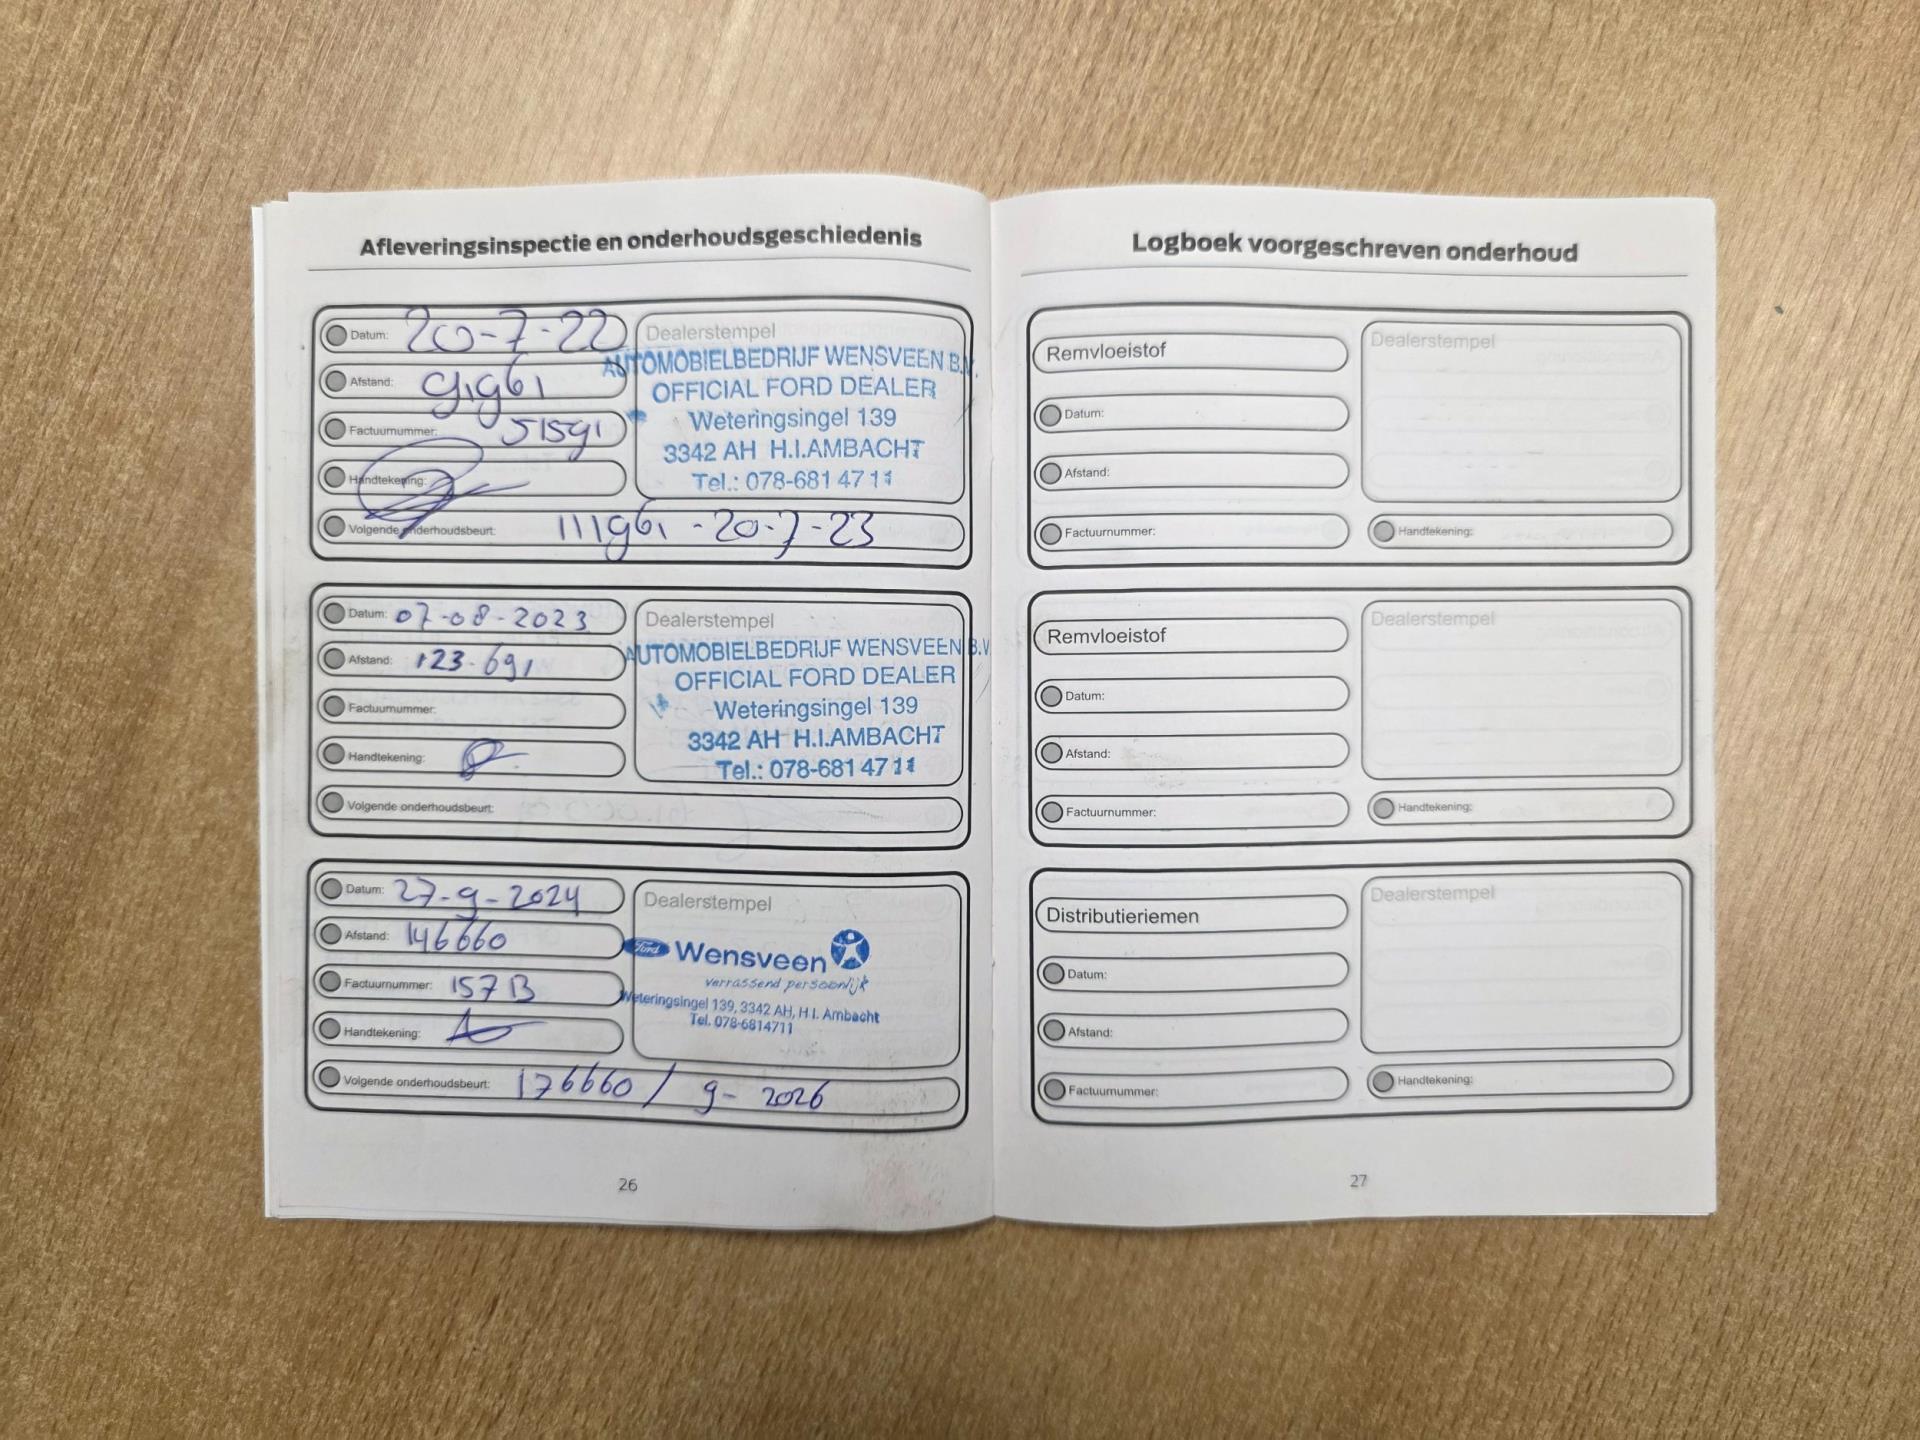 Afleveringsinspectie en onderhoudsgeschiedenis
Datum: 20-7-22
Afstand: 91961
Factuurnummer: 51591
Handtekening:
Volgende onderhoudsbeurt: 111961 - 20-7-23
Dealerstempel
AUTOMOBIELBEDRIJF WENSVEEN B.V.
OFFICIAL FORD DEALER
Weteringsingel 139
3342 AH H.I.AMBACHT
Tel.: 078-681 47 11
Datum: 07-08-2023
Afstand: 123.691
Factuurnummer:
Handtekening:
Volgende onderhoudsbeurt:
Dealerstempel
AUTOMOBIELBEDRIJF WENSVEEN B.V.
OFFICIAL FORD DEALER
Weteringsingel 139
3342 AH H.I.AMBACHT
Tel.: 078-681 47 11
Datum: 27-9-2024
Afstand: 146660
Factuurnummer: 157B
Handtekening:
Volgende onderhoudsbeurt: 176660 / 9-2026
Dealerstempel
Ford Wensveen
verrassend persoonlijk
Weteringsingel 139, 3342 AH, H.I. Ambacht
Tel. 078-6814711
26
Logboek voorgeschreven onderhoud
Remvloeistof
Datum:
Afstand:
Factuurnummer:
Dealerstempel
Handtekening:
Remvloeistof
Datum:
Afstand:
Factuurnummer:
Dealerstempel
Handtekening:
Distributieriemen
Datum:
Afstand:
Factuurnummer:
Dealerstempel
Handtekening:
27